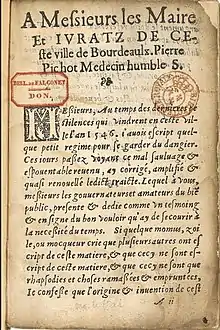 A Mesieurs les Maire
Et IVRATZ DE CE-
ste ville de Bourdeaulx. Pierre
Pichot Medecin humble S.
BIBL. DE FALCONET
DON.
MEsieurs, Au temps des dernieres pe-
stilences qui vindrent en ceste vil-
le l'an 1546. i'auois escript quel-
que petit regime pour se garder du dangier.
Ces iours passez voyant se mal sauuage &
espouentable reuenu, ay corrigé, amplifié &
quasi renouellé ledict traicte. Lequel à vous,
mesieurs les gouuernateurs et amateurs du biē
public, presente & dedie comme vn tesmoing
& en signe du bon vouloir qu'ay de secourir à
la necesité du temps. Si quelque momus, zoi
le, ou mocqueur crie que plusieurs autres ont es
cript de ceste matiere, & que cecy ne sont
rhapsodies et choses ramasées & empruntees,
Ie confesse que l'origine & inuention de cest
A ii